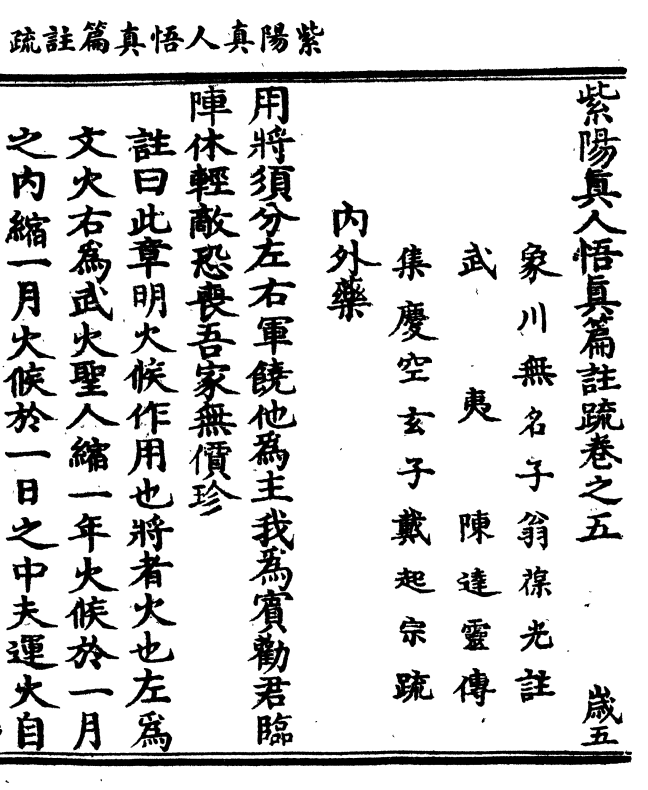 紫陽真人悟真篇註疏
紫陽真人悟真篇註疏卷之五
歲五
象川無名子翁葆光註
武夷陳達靈傳
集慶空玄子戴起宗疏
內外藥
用將須分左右軍饒他為主我為賓勸君臨
陣休輕敵恐喪吾家無價珍
註曰此章明火候作用也將者火也左為
文火右為武火聖人縮一年火候於一月
之內縮一月火候於一日之中夫運火自